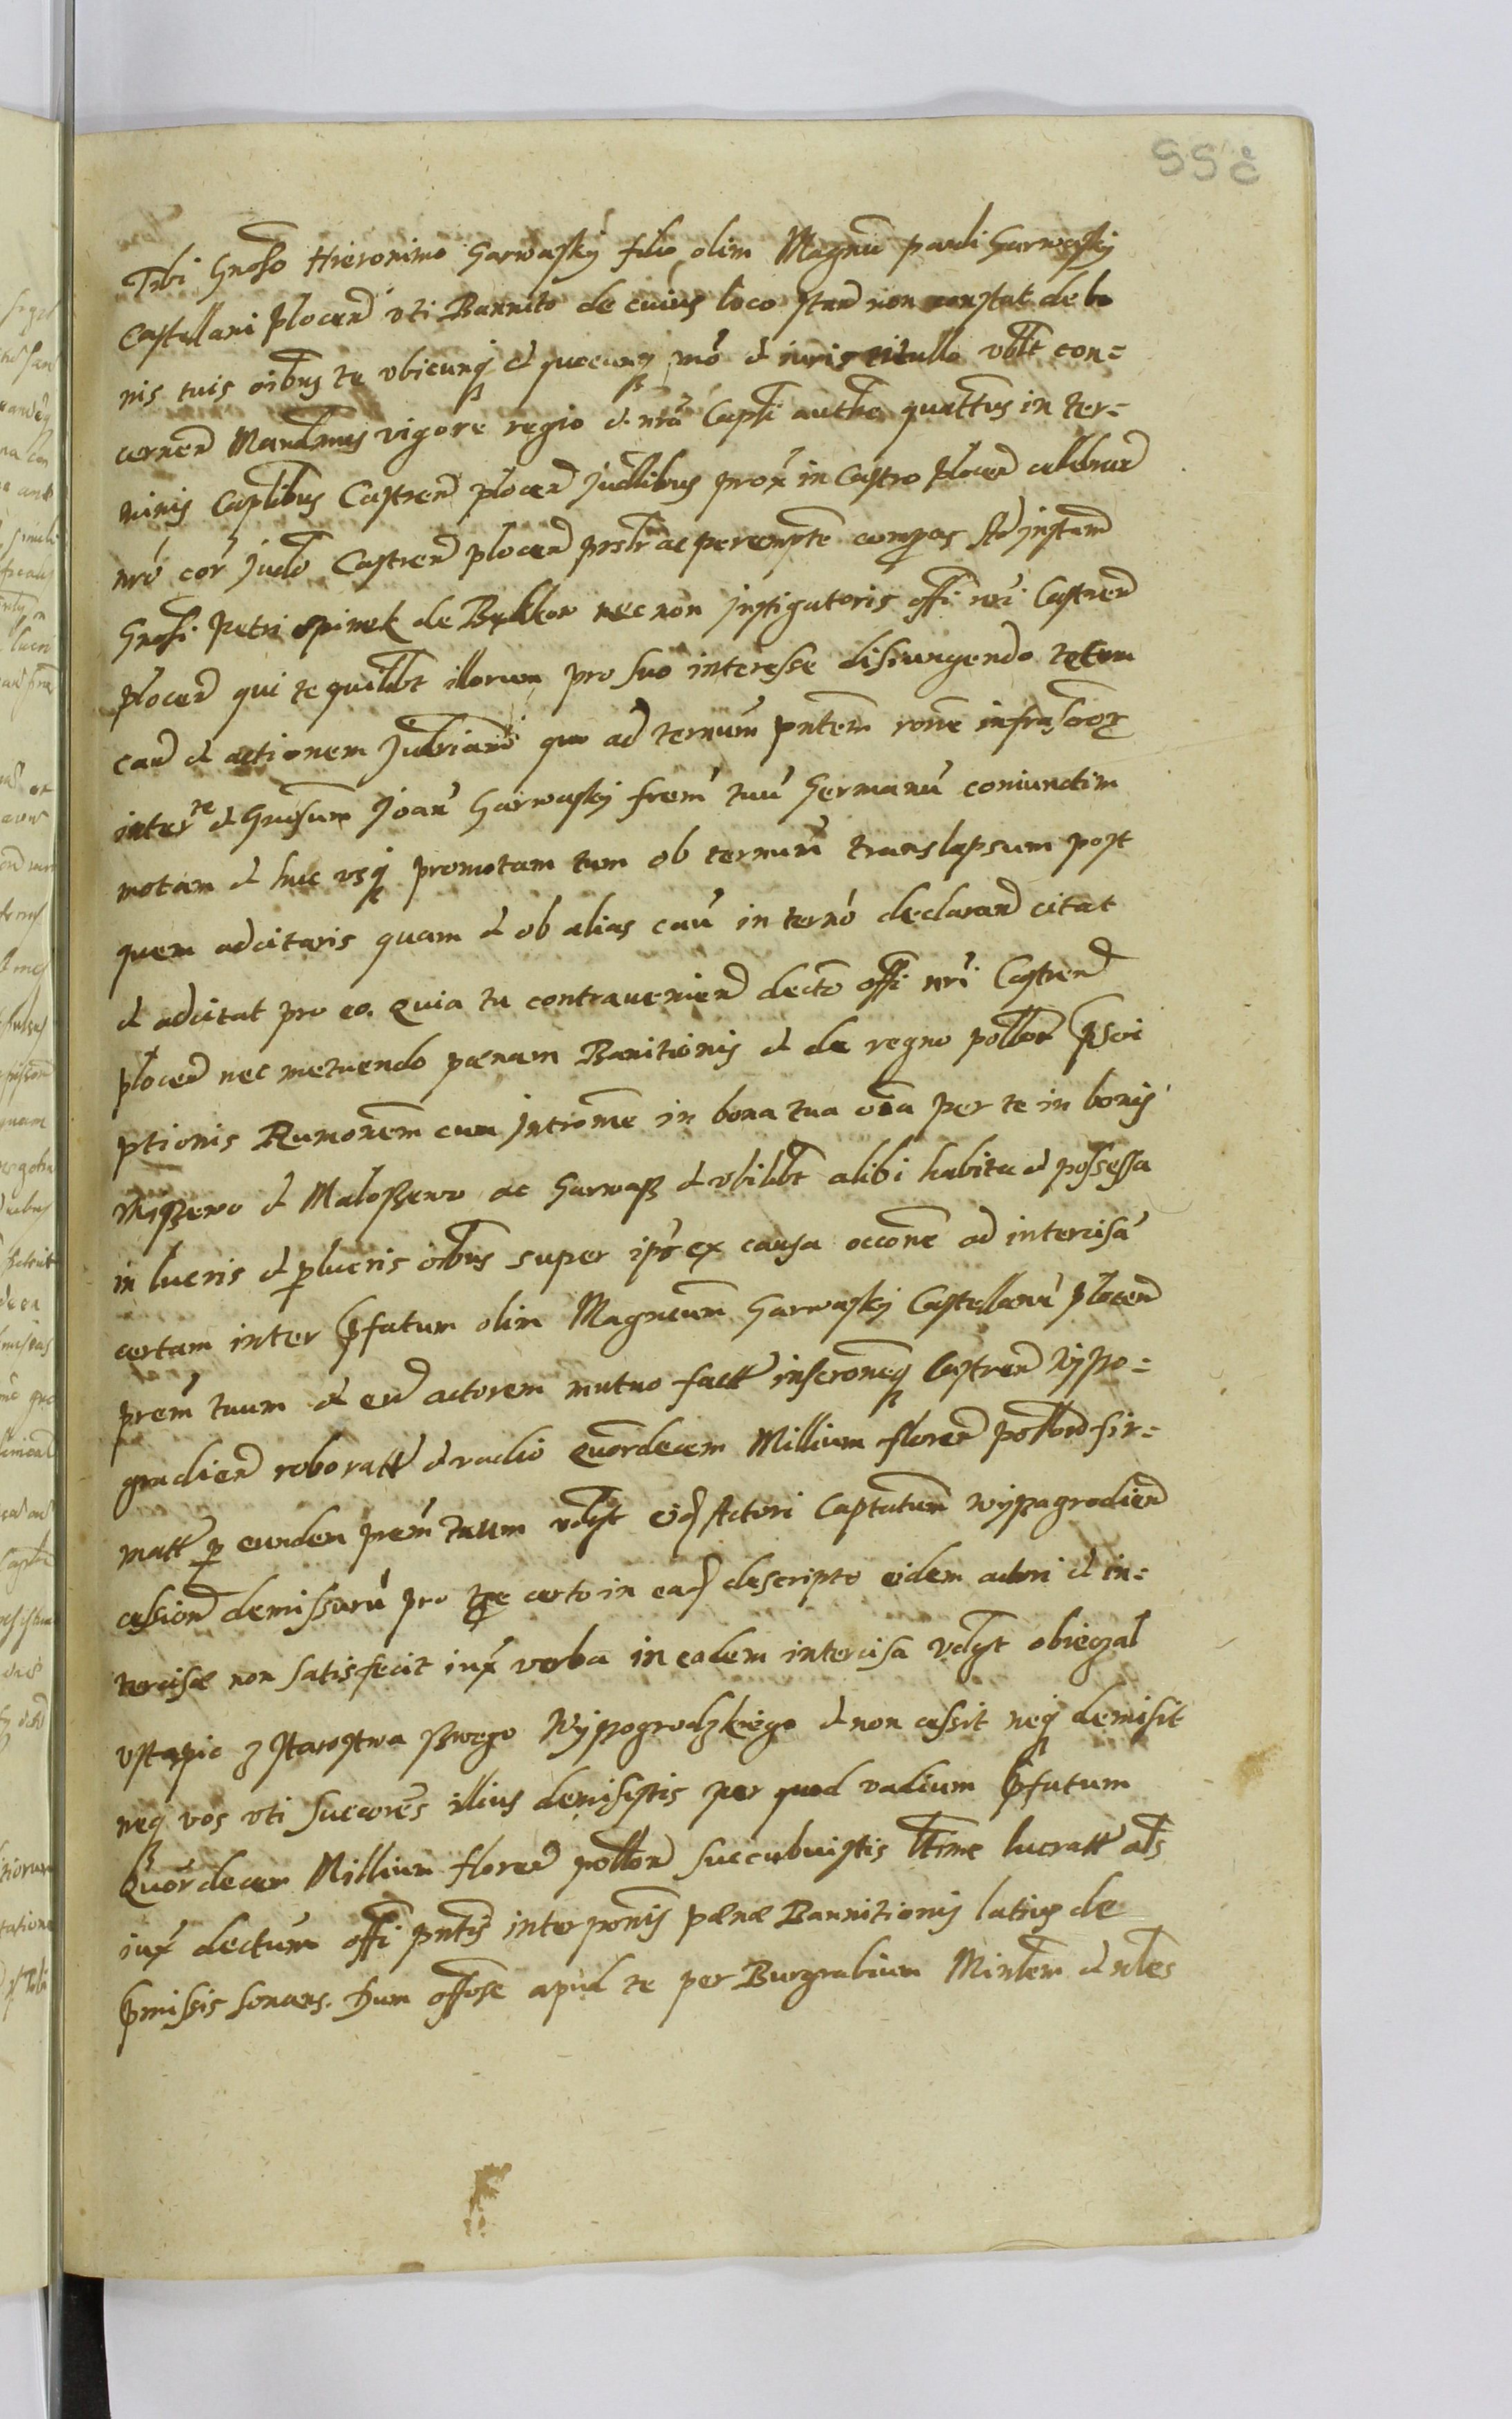 Tibi Gnoso Hieronimo Garwasky filio olim Magnci pauli Garwasky
Castellani plocen uti Bannito de cuius loco stan non constat de bo
nis tuis oibus te ubicunq et quecunq mo et iuris titullo ublt con=
cernen Mandmus vigore regio et nra Capli authe quattus in ter=
minis Caplibus Castren plocen Judlibus prox in Castro plocen celebran
nro cor Judo Castren plocen prslr ac perempte compas Ad Instam
Gnosi Petri Spinek de Bętkow nec non Instigatoris offi nri Castren
plocen qui te quilibt illorum pro suo interesse disiungendo totam
cau et actionem Judriam quo ad ternum pntem rone infrascor
inter te et Gnosum Joan Garwasky frem tuu Germanu coniunctim
motam et huc usq promotam tum ob ternum translapsum post
quem adcitaris quam et ob alias cau in terno declarand citat
et adcitat pro eo. Quia tu contravenien decto offi nri Castren
plocen nec metuendo pœnam Banitionis et de regno pollon pscri
ptionis Rumonem cum Intromne in bona tua oia per te in bonis
Miszewo et Maloszewo ac Garwasz et ubilibt alibi habita et possessa
in lucris et plucris oibus super ipso ex causa occone ad intercisa
certam inter pfatum olim Magncum Garwasky Castellanu plocen
prem tuum et eu actorem mutuo fact inscronesq Castren Wyszo=
gradien roboratt et vadio Quordecem Millium floren pollon fir=
matt p eunden prem tuum vdlgt eid Actori Captatum wyszagrodien
cession demissuru pro tpe certo in ead descripto eidem actori et in=
tercisæ non satisfecit iux verba in eadem intercisa vdlgt obieczal
ustapic z starostwa szwego Wyszogrodzkiego et non cessit neq demisit
neq vos uti succores illius demisistis per quod vadium pfatum
Quordecem Millium floren pollon succubuistis ltime lucratt als
iux dectum offi pntis interponis pœnæ Bannitionis latius de
pmissis sonans. Dum offose apud te per Burgrabium Minlem et nles